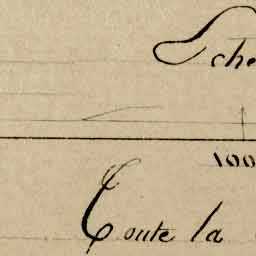 Sche
100
Toute la